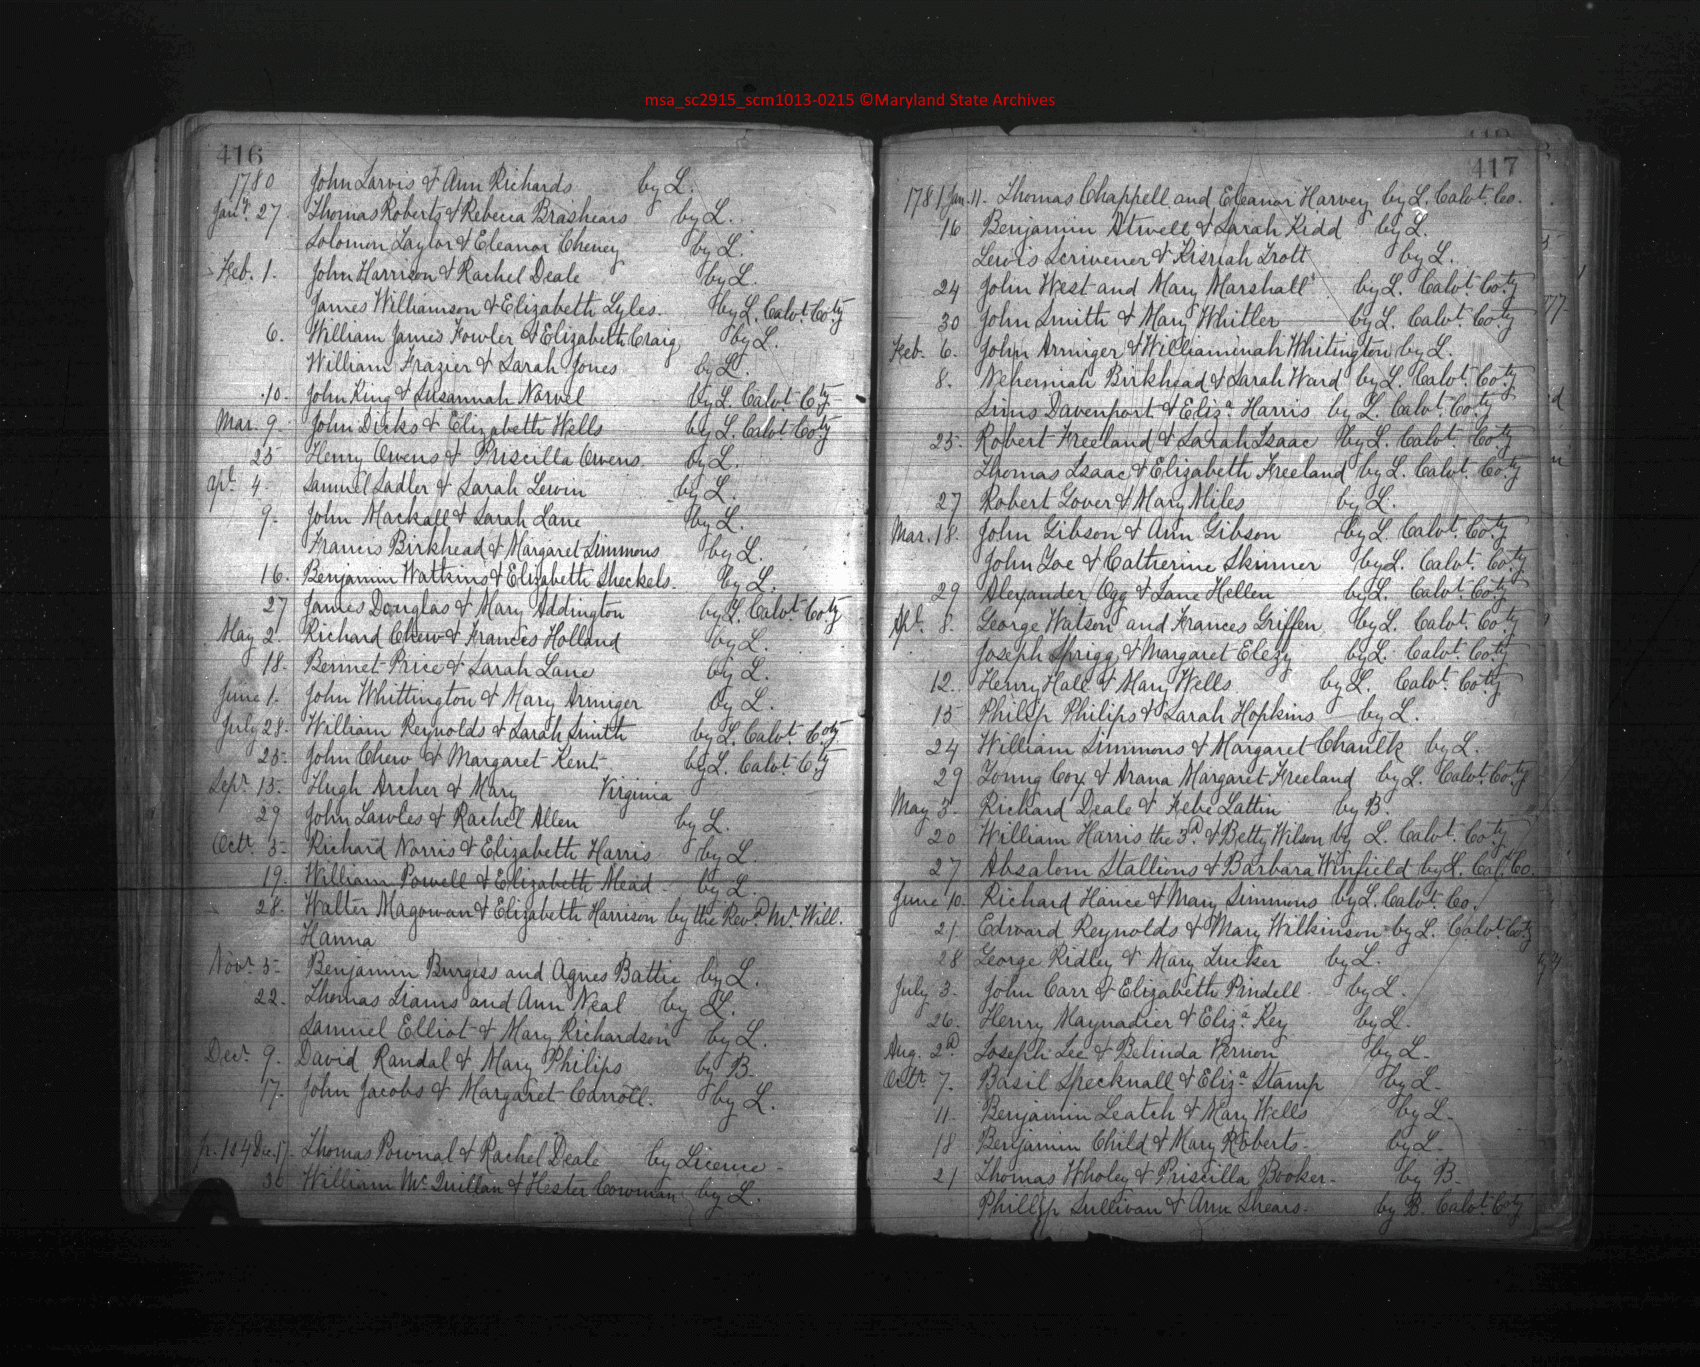 msa_sc2915_scm1013-0215 ©Maryland State Archives
416
1780 John Jarvis & Ann Richards by L.
Jany. 27 Thomas Roberts & Rebecca Brashears by L.
Solomon Taylor & Eleanor Cheney by L.
Feb. 1. John Harrison & Rachel Deale by L.
James Williamson & Elizabeth Lyles. by L. Calvt. Coty
6. William James Fowler & Elizabeth Craig by L.
William Frazier & Sarah Jones by L.
10. John King & Susannah Norvel by L. Calvt. Coty
Mar. 9. John Dicks & Elizabeth Wells by L. Calvt. Coty
25 Henry Owens & Priscilla Owens. by L.
Apl. 4. Samuel Sadler & Sarah Lewin by L.
9. John Mackall & Sarah Lane by L.
Francis Birkhead & Margaret Simmons by L.
16. Benjamin Watkins & Elizabeth Sheckels. by L.
27 James Douglas & Mary Addington by L. Calvt. Coty
May 2. Richard Chew & Frances Holland by L.
18. Bennet Price & Sarah Lane by L.
June 1. John Whittington & Mary Armiger by L.
July 28. William Reynolds & Sarah Smith by L. Calvt. Coty
25. John Chew & Margaret Kent. by L. Calvt. Coty
Sepr. 15. Hugh Archer & Mary Virginia
29 John Lawles & Rachel Allen by L.
Octr. 5. Richard Norris & Elizabeth Harris by L.
19. William Powell & Elizabeth Mead by L.
28. Walter Magowan & Elizabeth Harrison by the Revd. Mr. Will.
Hanna
Novr. 5. Benjamin Burgess and Agnes Battie by L.
22. Thomas Liams and Ann Neal by L.
Samuel Elliot & Mary Richardson by L.
Decr. 9. David Randal & Mary Philips by B.
17. John Jacobs & Margaret Carroll. by L.
p. 104 Dec. 17. Thomas Pownal & Rachel Deale by Licence -
30 William McQuillan & Hester Cowman by L.
417
1781 Jan. 11. Thomas Chappell and Eleanor Harvey by L. Calvt. Co.
16 Benjamin Atwell & Sarah Kidd by L.
Lewis Scrivener & Kisiah Trott by L.
24 John West and Mary Marshall by L. Calvt. Coty
30 John Smith & Mary Whitler by L. Calvt. Coty
Feb. 6. John Armiger & Williaminah Whitington by L.
8. Nehemiah Birkhead & Sarah Ward by L. Calvt. Coty
Sims Davenport & Eliza. Harris by L. Calvt. Coty
25. Robert Freeland & Sarah Isaac by L. Calvt. Coty
Thomas Isaac & Elizabeth Freeland by L. Calvt. Coty
27 Robert Gover & Mary Miles by L.
Mar. 18. John Gibson & Ann Gibson by L. Calvt. Coty
John Zoe & Catherine Skinner by L. Calvt. Coty
29 Alexander Ogg & Jane Hellen by L. Calvt. Coty
Apl. 8. George Watson and Frances Griffen by L. Calvt. Coty
Joseph Sprigg & Margaret Elezy by L. Calvt. Coty
12. Henry Hall & Mary Wells by L. Calvt. Coty
15 Philip Philips & Sarah Hopkins by L.
24 William Simmons & Margaret Chaulk by L.
29 Young Cox & Arana Margaret Freeland by L. Calvt. Coty
May 3. Richard Deale & Febe Lattin by B.
20 William Harris the 3d. & Betty Wilson by L. Calvt. Coty
27 Absalom Stallions & Barbara Winfield by L. Calt. Co.
June 10. Richard Hance & Mary Simmons by L. Calvt. Co.
21 Edward Reynolds & Mary Wilkinson by L. Calvt. Coty
28 George Ridley & Mary Tucker by L.
July 3. John Carr & Elizabeth Pindell by L.
26. Henry Maynadier & Eliza. Key by L.
Aug. 2d Joseph Lee & Belinda Vernon by L.
Octr. 7. Basil Specknall & Eliza. Stamp by L.
11. Benjamin Leatch & Mary Wells by L.
18 Benjamin Child & Mary Roberts. by L.
21 Thomas Wholey & Priscilla Booker. by B.
Phillip Sullivan & Ann Shears. by B. Calvt. Coty